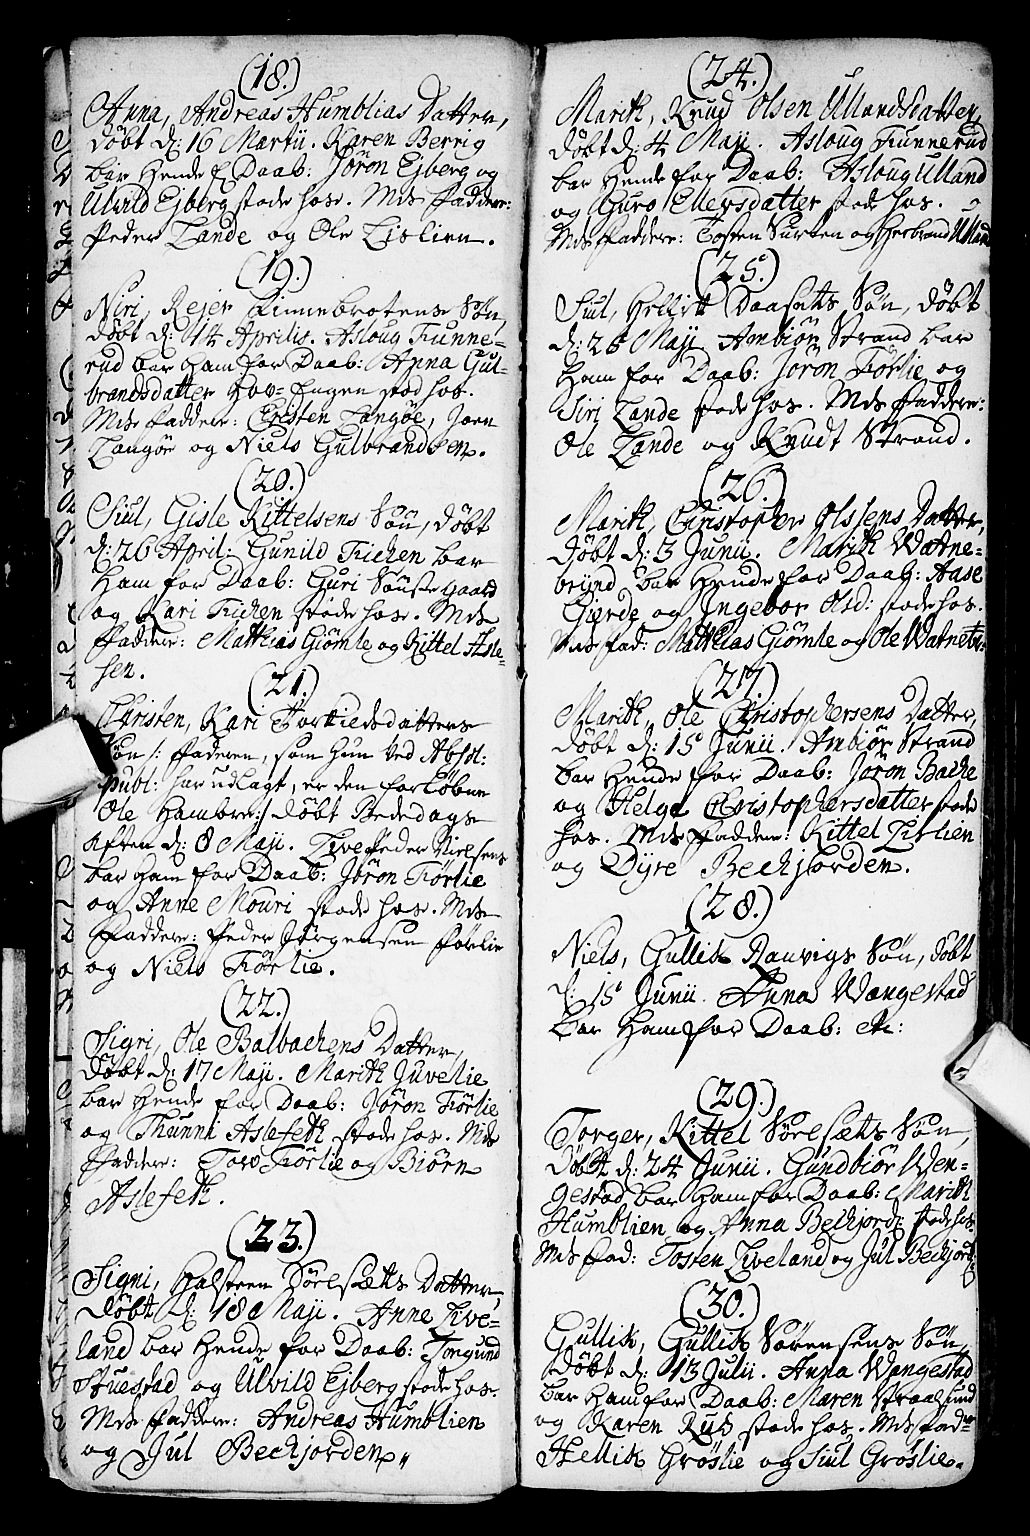 (18.)
Anna, Andreas Humblias Datter,
döbt d: 16 Martii. Karen Berrig
bar Hende f Daab: Jöron Ejberg og
Ulvild Ejberg stode hos. Mds Faddere:
Peder Lande og Ole Lislien.
(19.)
Niri, Rejer Finnebrotens Sön,
döbt d: 14 Aprilis. Asloug Trunne-
rud bar Ham for Daab: Anna Gul-
brandsdatter Hov-Engen stod hos.
Mds Faddere: Christen Langöe, Joen
Langöe og Niels Gulbrandsen.
(20.)
Siul, Gisle Kittelsens Sön, döbt
d: 26 April: Gunild Tichen bar
Ham for Daab: Guri Sönstegaard
og Kari Tichen stode hos. Mds
Faddere: Mathias Giömle og Kittel Asle-
sen.
(21.)
Christen, Kari Torkieldsdatters
Sön /: Faderen, som hun ved Absol:
publ: har udlagt, er den forlöbne
Ole Hambre:/ döbt Bededags
Aften d: 8 Maji. Live Peder Nielsens
bar Ham for Daab: Jöron Förlie
og Anne Mouri stode hos. Mds
Faddere: Peder Jörgensen Förlie
og Niels Förlie.
(22.)
Sigri, Ole Balbachens Datter,
döbt d: 17 Maji. Marith Juvelie
bar Hende for Daab: Jöron Förlie
og Thunni Aslefeth stode hos. Mds
Faddere: Tov Förlie og Biörn
Aslefeth.
(23.)
Signi, Halsteen Sörelsæts Datter,
döbt d: 18 Maji. Anne Live-
land bar Hende for Daab: Torgund
Stuestad og Ulvild Ejberg stode hos.
Mds Faddere: Andreas Humblien
og Jul Bechjorden.
(24.)
Marith, Knud Olsen Ullands datter,
döbt d: 4 Maji. Asloug Trunnerud
bar Hende for Daab: Asloug Ulland
og Guro Ellevsdatter stode hos.
Mds Faddere: Tosten Surten og Herbrand Ulland
(25.)
Siul, Hellik Daasæts Sön, döbt
d: 26 Maji Ambiör Strand bar
Ham for Daab: Jöron Förlie og
Siri Lande stode hos. Mds Faddere:
Ole Lande og Knudt Strand.
(26.)
Marith, Christopher Olssens Datter,
döbt d: 3 Junii. Marith Watne-
brynd bar Hende for Daab: Aase
Gjerde og Ingebor Olsd: stode hos.
Mds Fad: Mathias Giömle og Ole Watnebr:
(27.)
Marith, Ole Christophersens Datter,
döbt d: 15 Junii. Ambiör Strand
bar Hende for Daab: Jöron Bache
og Helga Christophersdatter stode
hos. Mds Faddere: Kittel Lislien
og Dyre Bechjorden.
(28.)
Niels, Gullik Ranvigs Sön, döbt
d: 15 Junii. Anna Wangestad
bar Ham for Daab: etc:
(29.)
Torger, Kittel Sörelsæts Sön,
döbt d: 24 Junii. Gundbiör Wen-
gestad bar Ham for Daab: Marith
Humblien og Anna Bechjord: stode hos.
Mds Fad: Tosten Liveland og Jul Bechjord:
(30.)
Gullik, Gullik Sörensens Sön,
döbt d: 13 Julii. Anna Wangestad
bar Ham for Daab: Maren Straalsund
og Karen Rud stode hos. Mds Fadre
Hellik Gröslie og Siul Gröslie.